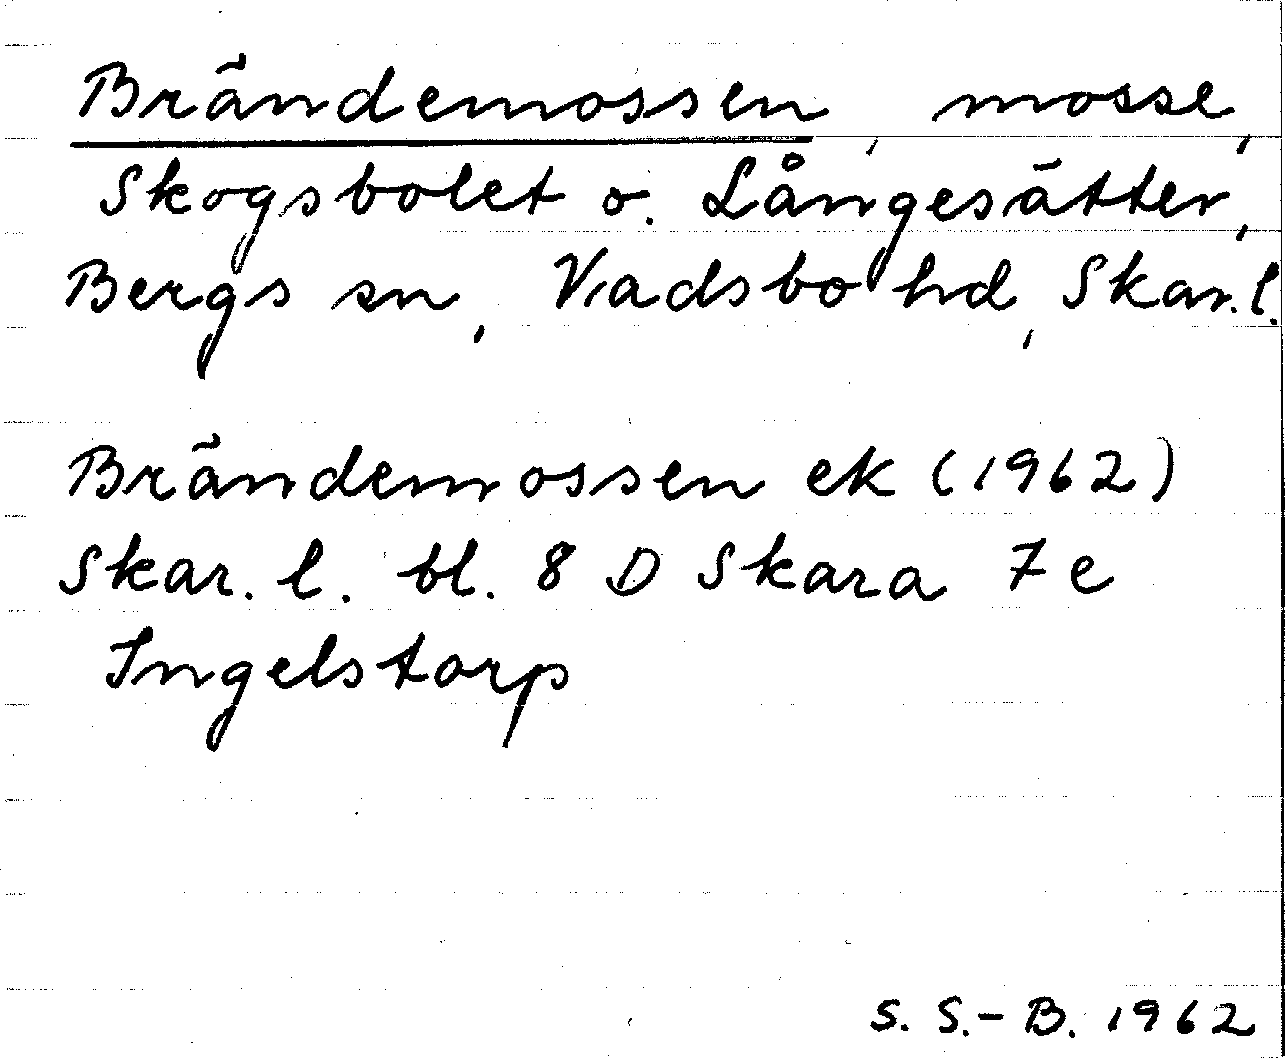 Brändemossen, mosse,
Skogsbolet o. Långesätter,
Bergs sn, Vadsbo hd, Skar. l.
Brändemossen ek (1962)
Skar. l. bl. 8 D Skara 7 e
Ingelstorp
S. S.-B. 1962